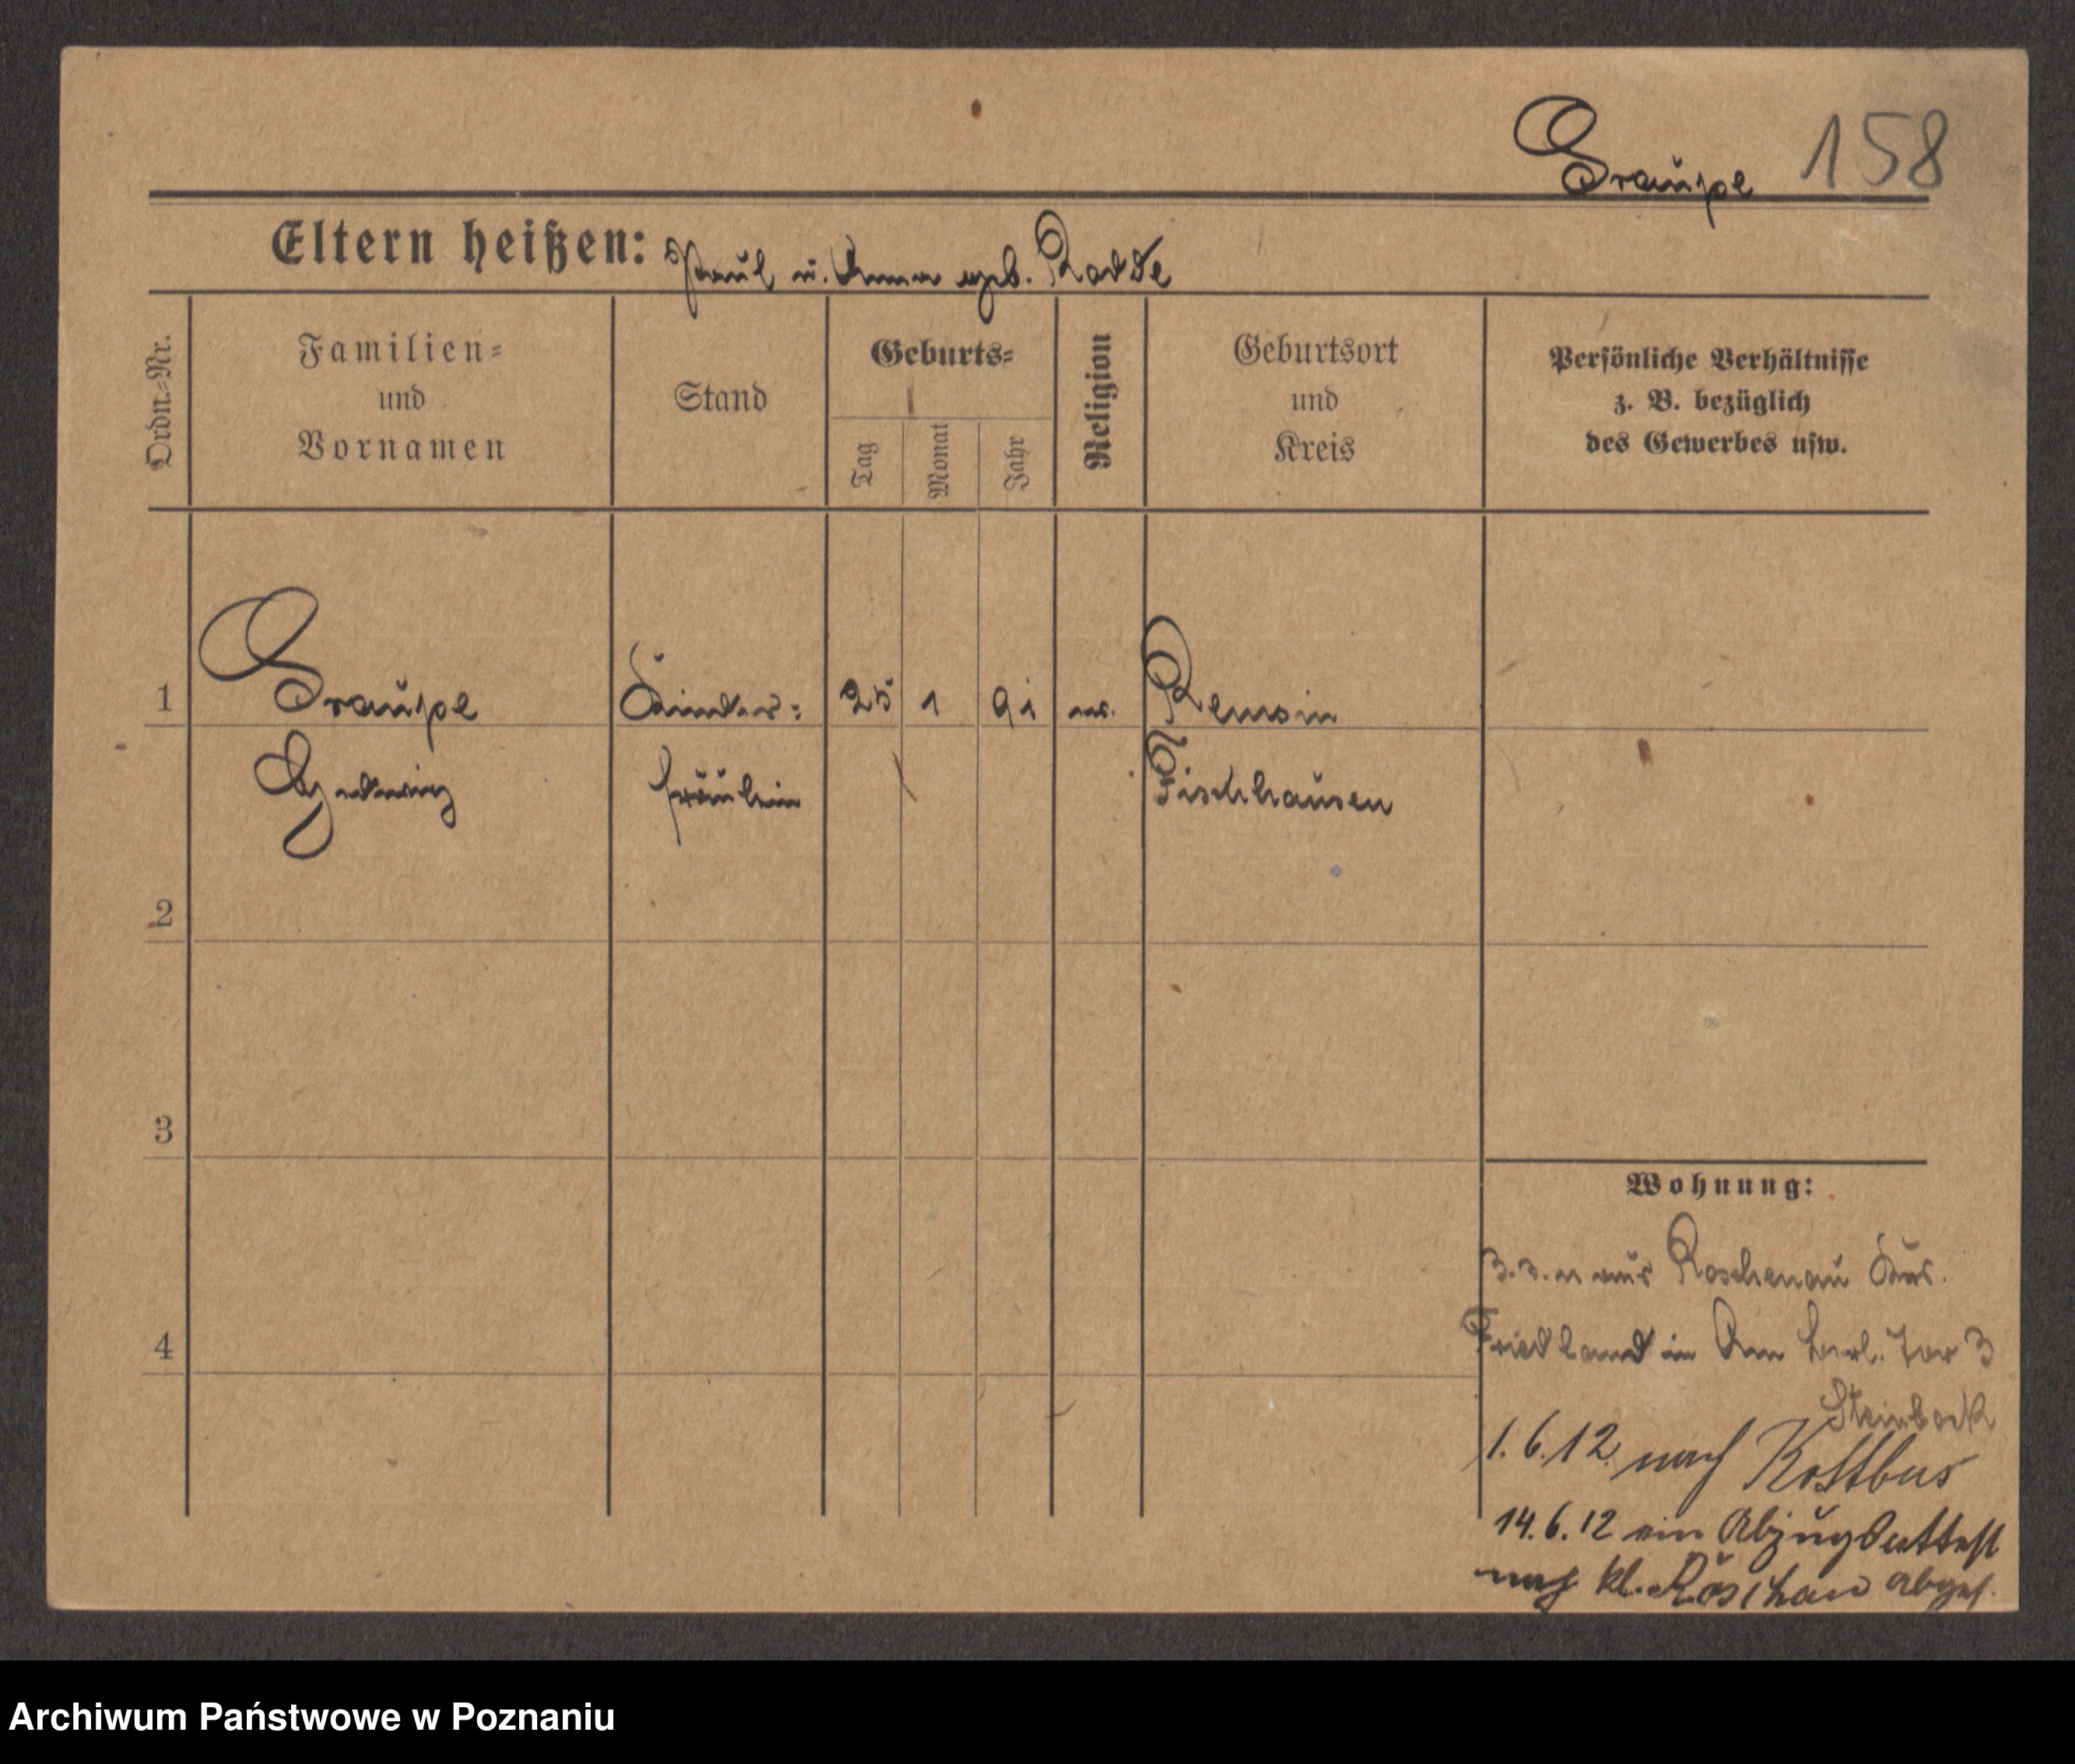 Graupe 158
Eltern heißen: Paul u. Anna geb. Radde
Ordn.=Nr.
Familien=
und
Vornamen
Stand
Geburts=
Tag
Monat
Jahr
Religion
Geburtsort
und
Kreis
Persönliche Verhältnisse
z. B. bezüglich
des Gewerbes usw.
1 Graupe Kinder= 25 1 91 ev.
Hedwig fräulein Fischhausen
2
3
4
Wohnung:
3.3. aus Roschenau Krs.
Friedland in Am Berl. Tor 3
Steinbock
1.6.12. nach Kottbus
14.6.12 ein Abzugsattest
nach kl. Röschau abges.